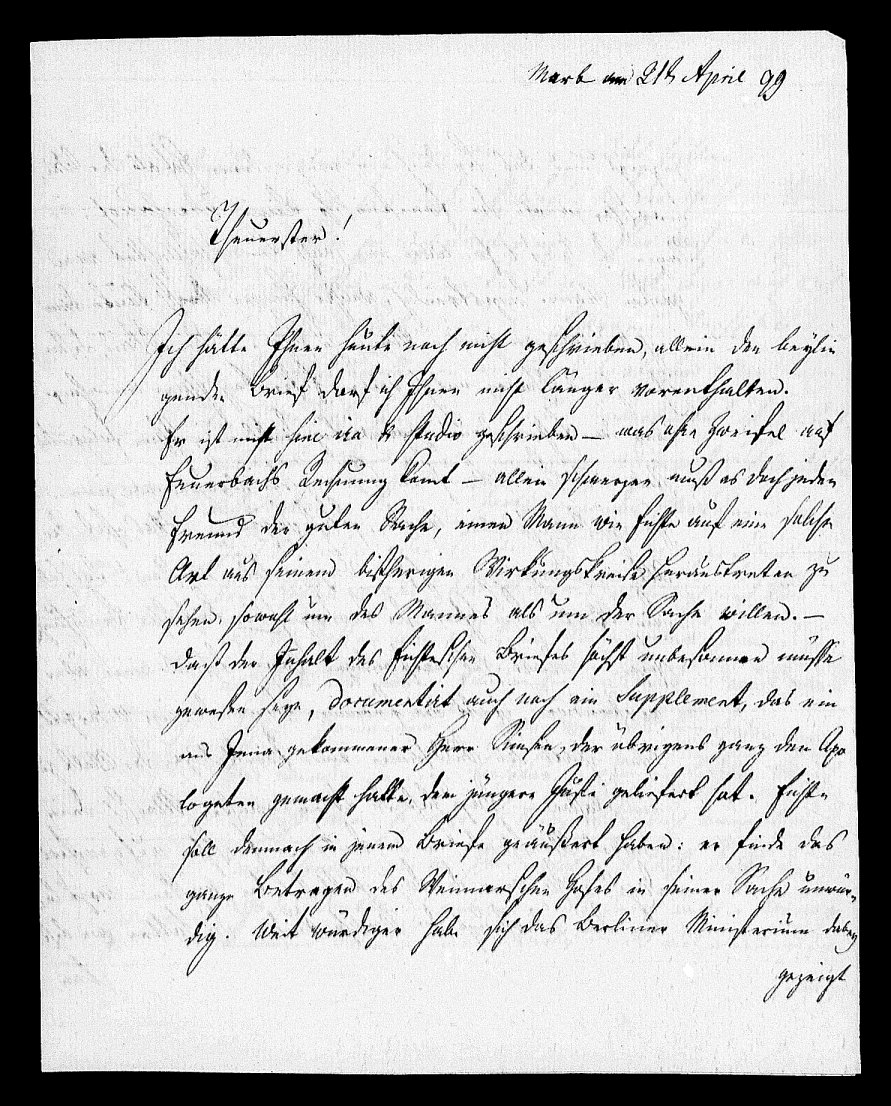 Marb am 21t April 99
Theuerster!
Ich hätte Ihnen heute noch nicht geschrieben, allein den beylie
genden Brief darf ich Ihnen nicht länger vorenthalten.
Er ist nicht sine ira & studio geschrieben – was ohne Zweifel auf
Feuerbachs Rechnung komt – allein schmerzen muß es doch jeden
Freund der guten Sache, einen Mann wie Fichte auf eine solche
Art aus seinem bisherigen Wirkungskreise heraustreten zu
sehen, sowohl um des Mannes als um der Sache willen. –
Daß der Inhalt des Fichteschen Briefes höchst unbesonnen müsse
gewesen seyn, documentirt auch noch ein Supplement, das ein
aus Jena gekommener Herr der übrigens ganz den Apo
logeten gemacht hatte, dem jüngern geliefert hat. Fichte
soll demnach in jenem Briefe geäußert haben: er finde das
ganze Betragen des Weimarschen Hofes in seiner Sache unwür-
dig. Weit würdiger habe sich das Berliner Ministerium dabey
gezeigt